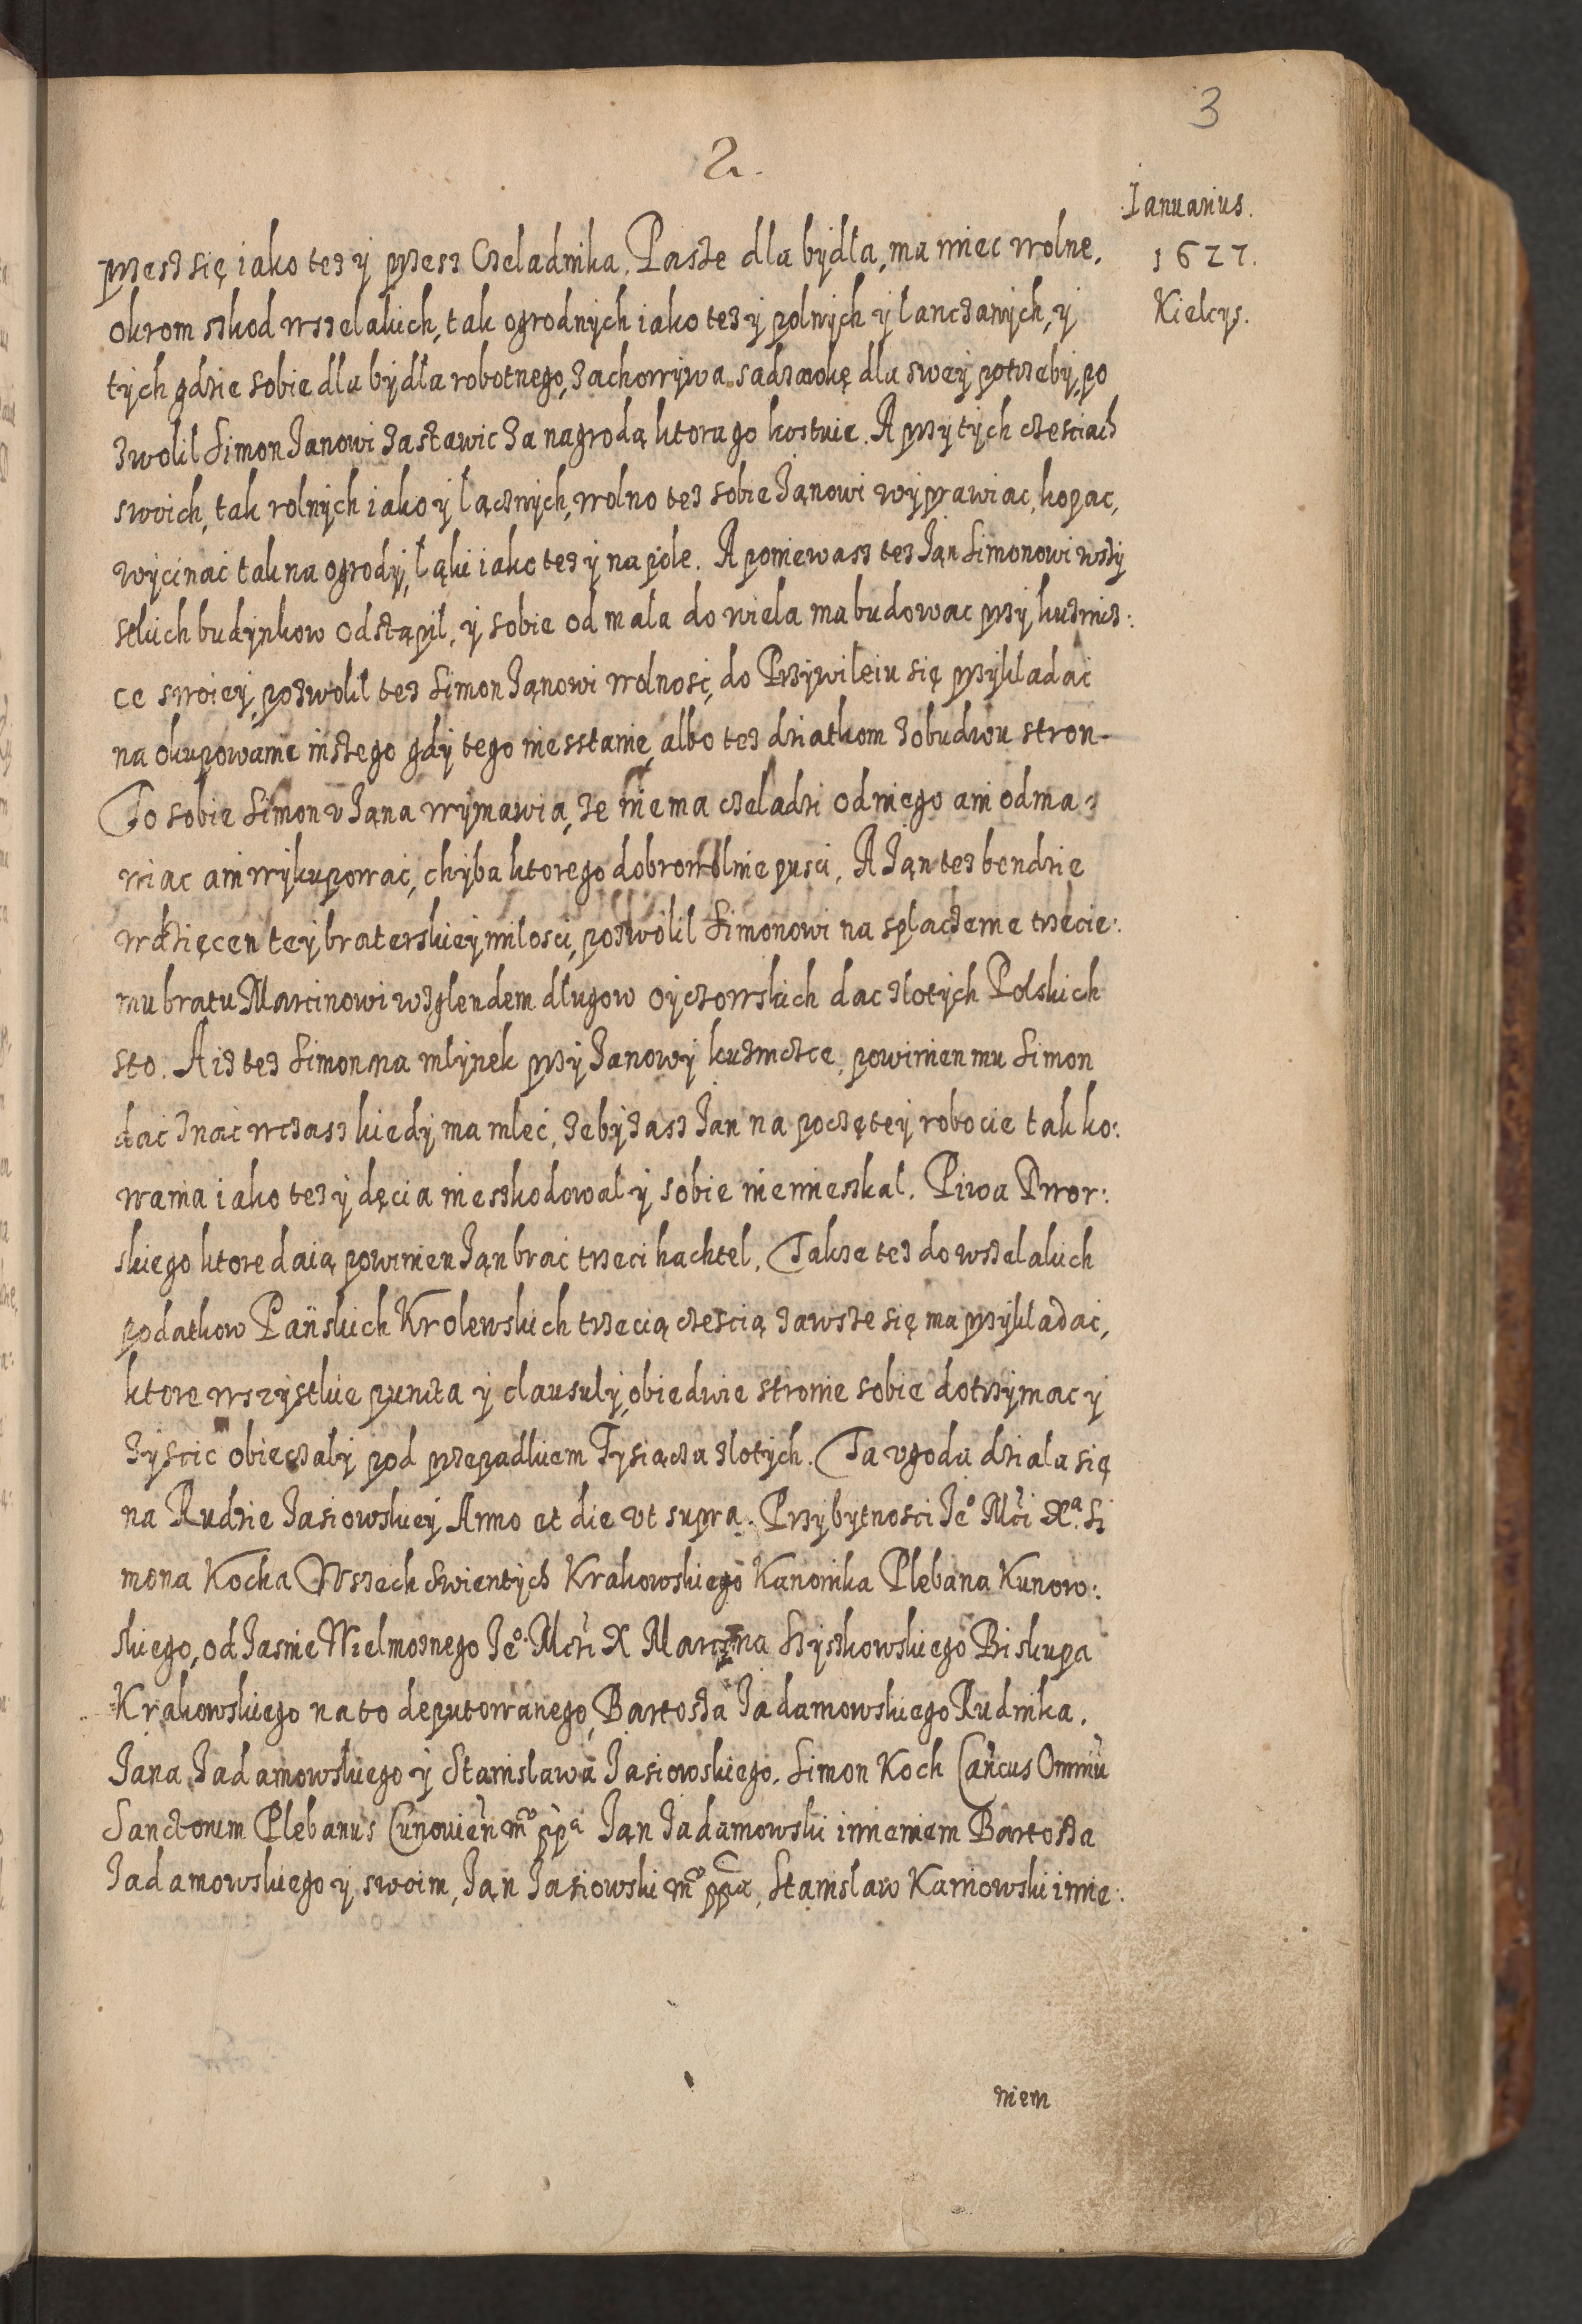 3
2.
Ianuarius.
1627.
Kielcys.
przesz się iako tez y przesz Czeladnika. Pasze dla bydła, ma miec wolne,
okrom szkod wszelakich, tak ogrodnych iako tez y polnych y lanczanych, y
tych gdzie sobie dla bydła robotnego, zachowywa. sadzawkę dla swey potrzeby, po
zwolil Simon Janowi zastawic za nagrodą ktora go kostuie. A przy tych czesciach
swoich, tak rolnych iako y lącznych, wolno tez sobie Janowi wyprawiac, kopac,
wycinac tak na ogrody, ląki iako tez y na pole. A poniewasz tez Jan Simonowi wszy
stkich budynkow odstąpil, y sobie od mala do wiela ma budowac przy kuznicz:
ce swoiey, pozwolil tez Simon Janowi wolnosc, do Przywileiu się przykladac
na okupowanie inszego gdy tego niesstanie, albo tez dziatkom z obudwu stron-
To sobie Simon v Jana wymawia, ze niema czeladzi od niego ani odma:
wiac ani wykupowac, chyba ktorego dobrowolnie pusci, A Jan tez bendzie
wdzięcen tey braterskiey milosci, pozwolil Simonowi na splaczenie trzecie:
mu bratu Marcinowi wzglendem dlugow oyczowskich dac zlotych Polskich
sto. A iz tez Simon ma mlynek przy Janowy kuzniczce, powinien mu Simon
dac znac wczasz kiedy ma mlec, zeby zasz Jan na poczętey robocie tak ko:
wania iako tez y dęcia nieszkodowal y sobie niemieszkal. Piwa Dwor:
skiego ktore daią powinien Jan brac trzeci hachtel, Takze tez do wszelakich
podatkow Pańskich Krolewskich trzecią czescią zawsze się ma przykladac,
ktore wszystkie puncta y clausuly, obiedwie stronie sobie dotrzymac y
zyscic obieczaly pod przepadkiem Tysiącza zlotych. Ta vgoda dziala się
na Rudzie Jasiowskiey Anno et die vt supra. Przy bytnosci Je° Mci Xa. Si
mona Kocha Wszech Swientych Krakowskiego Kanonika Plebana Kunow:
skiego, od Jasnie Wielmoznego Je° Mci X Marczina Szyszkowskiego Biskupa
Krakowskiego na to deputowanego, Bartosza Jadamowskiego Rudnika,
Jana Jadamowskiego y Stanislawa Jasiowskiego. Simon Koch Cancus Omniu
Sanctorum Plebanus Cunovien mo ppa Jan Jadamowski imieniem Bartosza
Jadamowskiego y swoim, Jan Jasiowski mo ppa, Stanislaw Karniowski imie:
niem